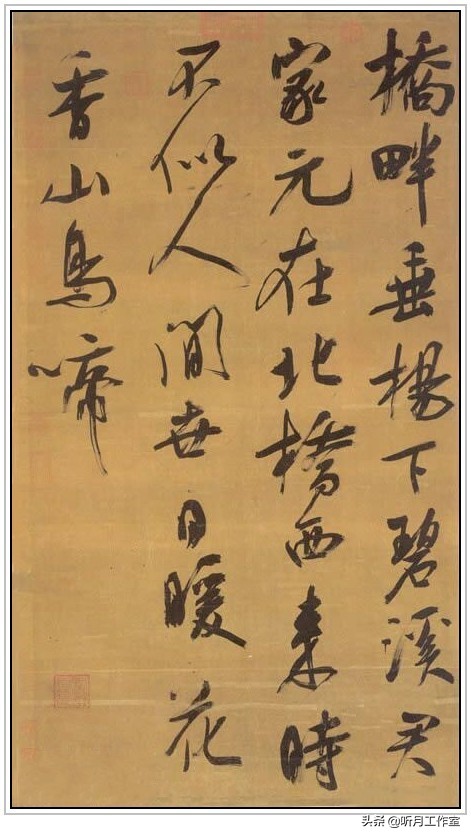 橋畔垂楊下碧溪君
家元在北橋西來時
不似人間世日暖花
香山鳥啼
头条@听月工作室